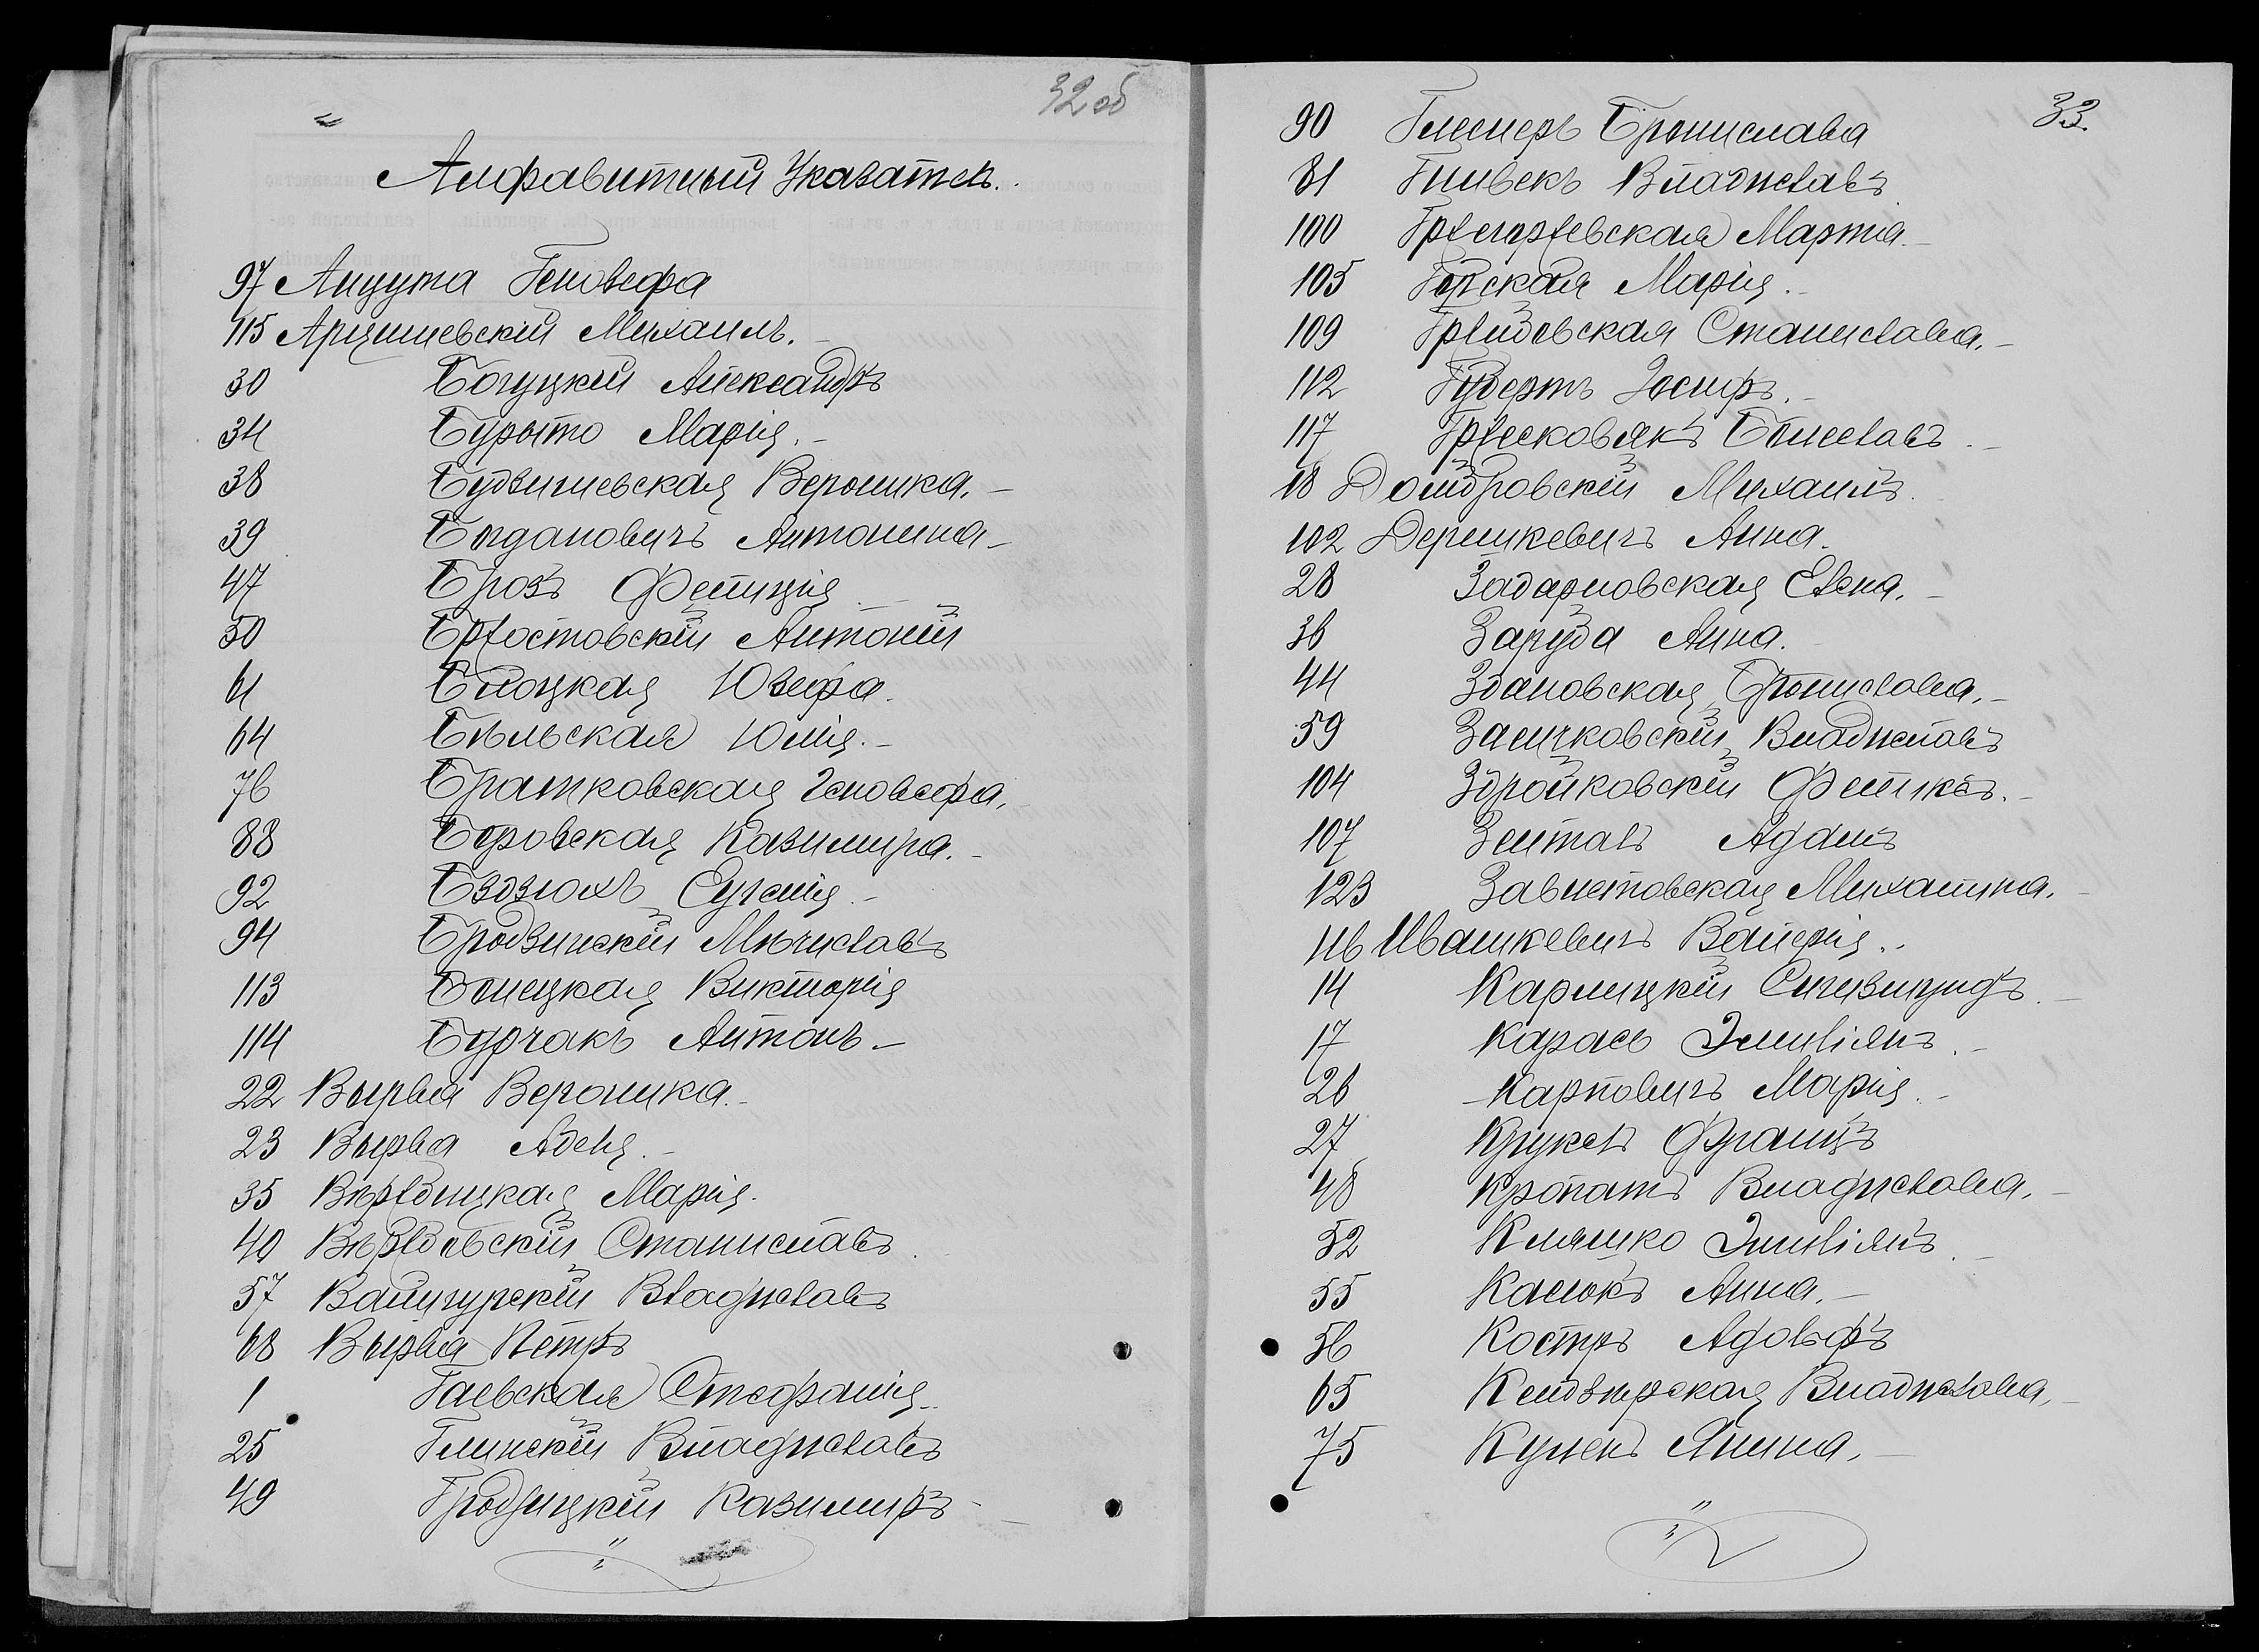 32 об
Алфавитный Указатель.
97 Анцута Геновефа
115 Арцишевскій Михаилъ.
30 Богуцкій Александръ
34 Бурыто Марія.
38 Будзишевская Вероника.
39 Богдановичъ Антонина
47 Брозъ Фелиція
50 Бржостовскій Антоній
61 Блоцкая Юзефа.
64 Бѣльская Юлія.
76 Братковская Геновефа.
88 Боровская Казимира.
92 Бздзюхъ Евгенія.
94 Бродзинскій Мѣчиславъ
113 Болецкая Викторія
114 Бурчакъ Антонъ
22 Вырва Вероника.
23 Вырва Адель.
35 Вѣржбицкая Марія.
40 Вѣржбовскій Станиславъ.
57 Вайнгурскій Владиславъ
68 Вырва Петръ
1 Гаевская Стефанія
25 Глинскій Владиславъ
49 Гродзицкій Казимиръ
33.
90 Глеснеръ Бронислава
81 Гнивекъ Владиславъ
100 Гржегоржевская Марта.
105 Горская Марія.
109 Гржибовская Станислава.
112 Губертъ Іосифъ.
117 Гржесковякъ Болеславъ.
18 Домбровскій Михаилъ.
102 Дерешкевичъ Анна.
28 Задарновская Елена.
36 Заруба Анна.
44 Здановская Бронислава.
59 Засичковскій Владиславъ
104 Здройковскій Феликсъ.
107 Зенталь Адамъ
123 Завистовская Михалина.
116 Ивашкевичъ Валерія.
14 Карлицкій Сигизмундъ.
17 Карась Эмиліянъ.
26 Карповичъ Марія.
27 Круксъ Францъ
48 Кропатъ Владислава.
52 Кляшко Эмиліянъ.
55 Касюкъ Анна.
56 Костръ Адольфъ
65 Кендзерская Владислава.
75 Кулекъ Янина.